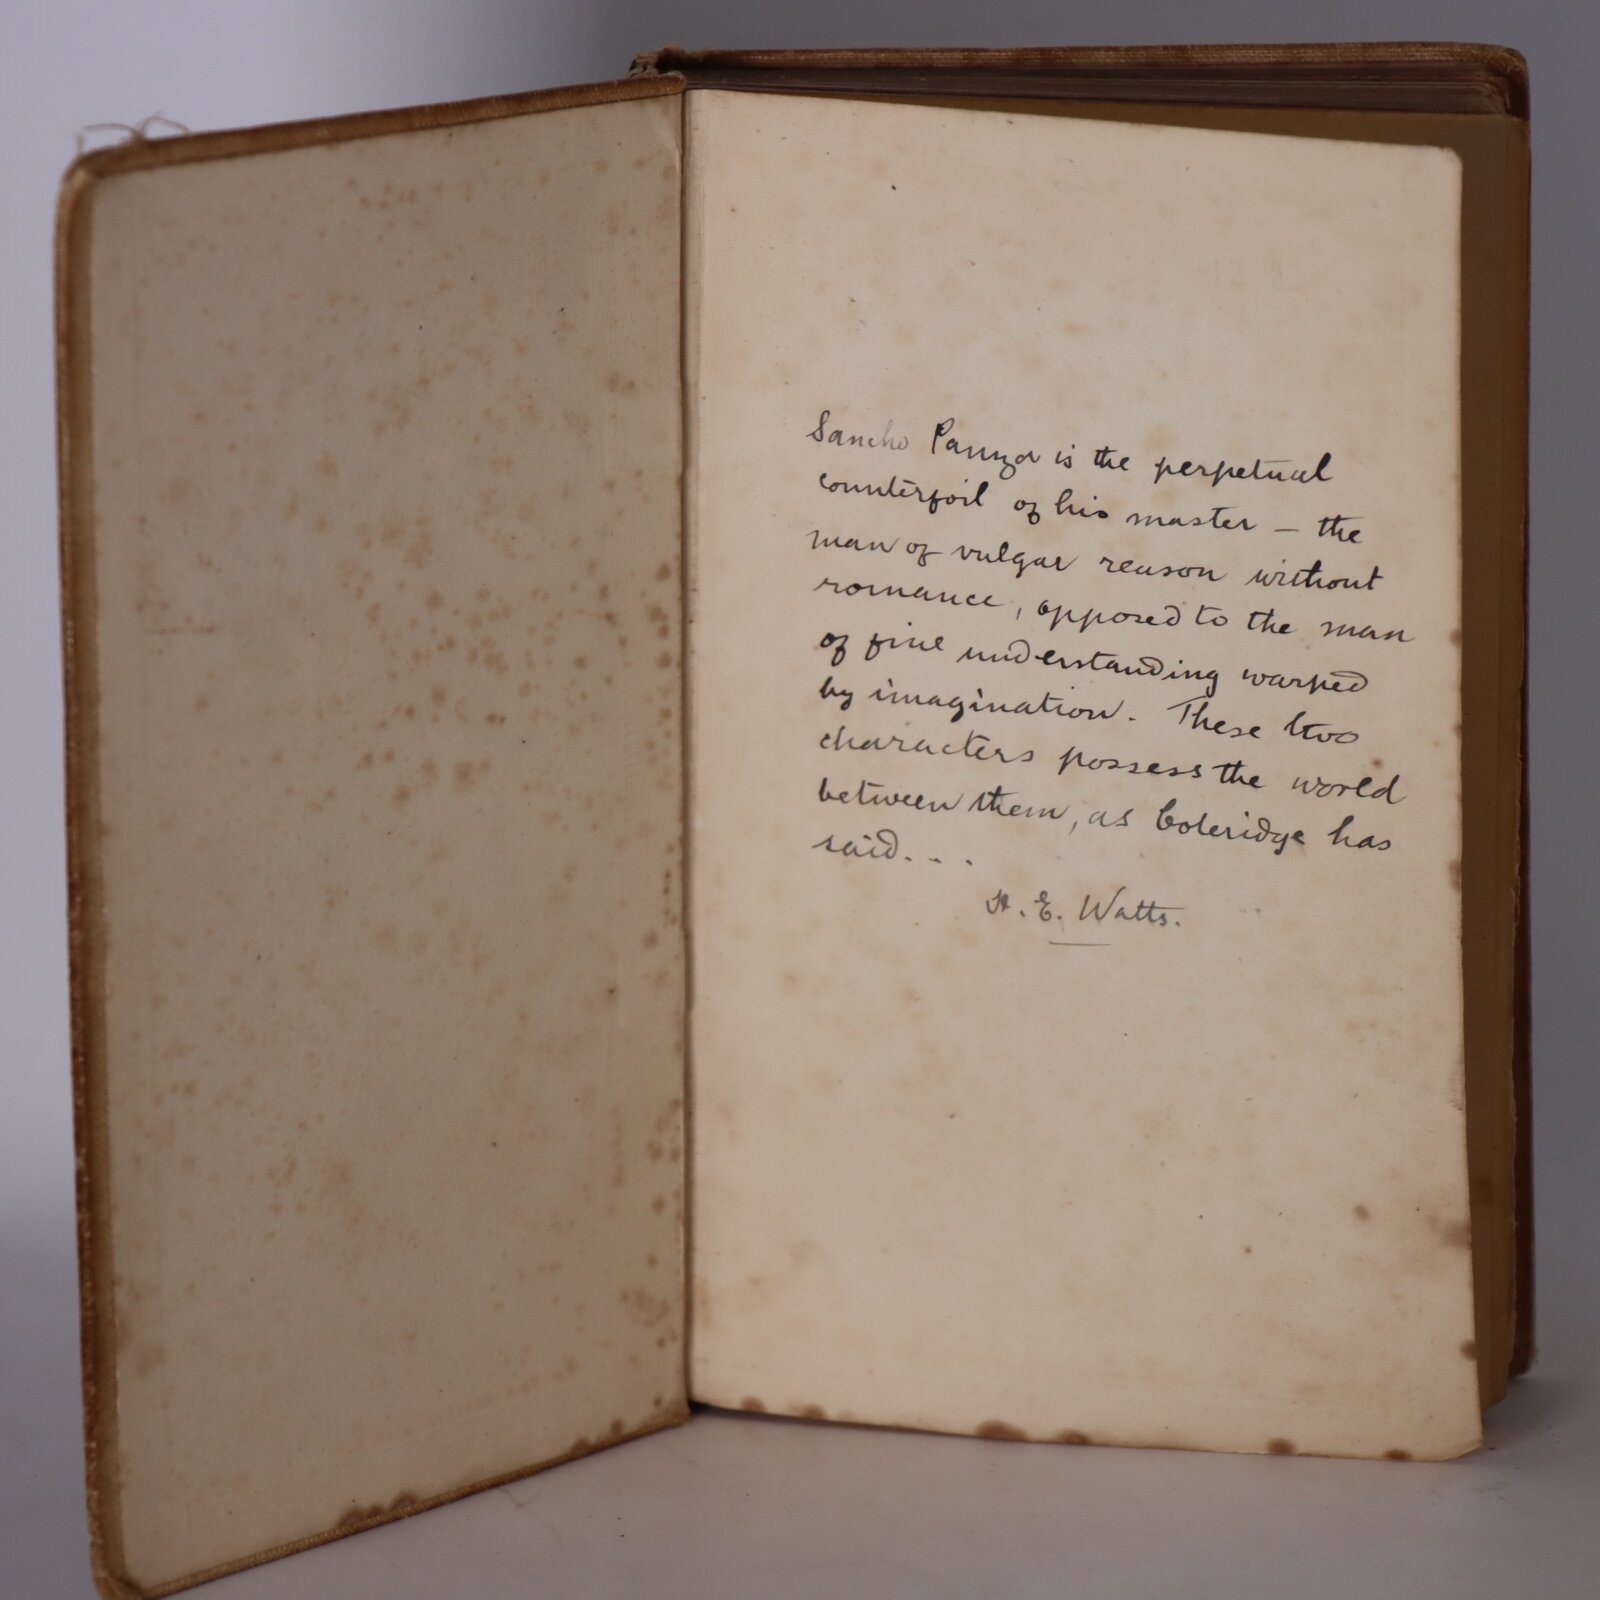 Sancho Panza is the perpetual
counterfoil of his master – the
man of vulgar reason without
romance, opposed to the man
of fine understanding warped
by imagination. These two
characters possess the world
between them, as Coleridge has
said. . .
H. E. Watts.